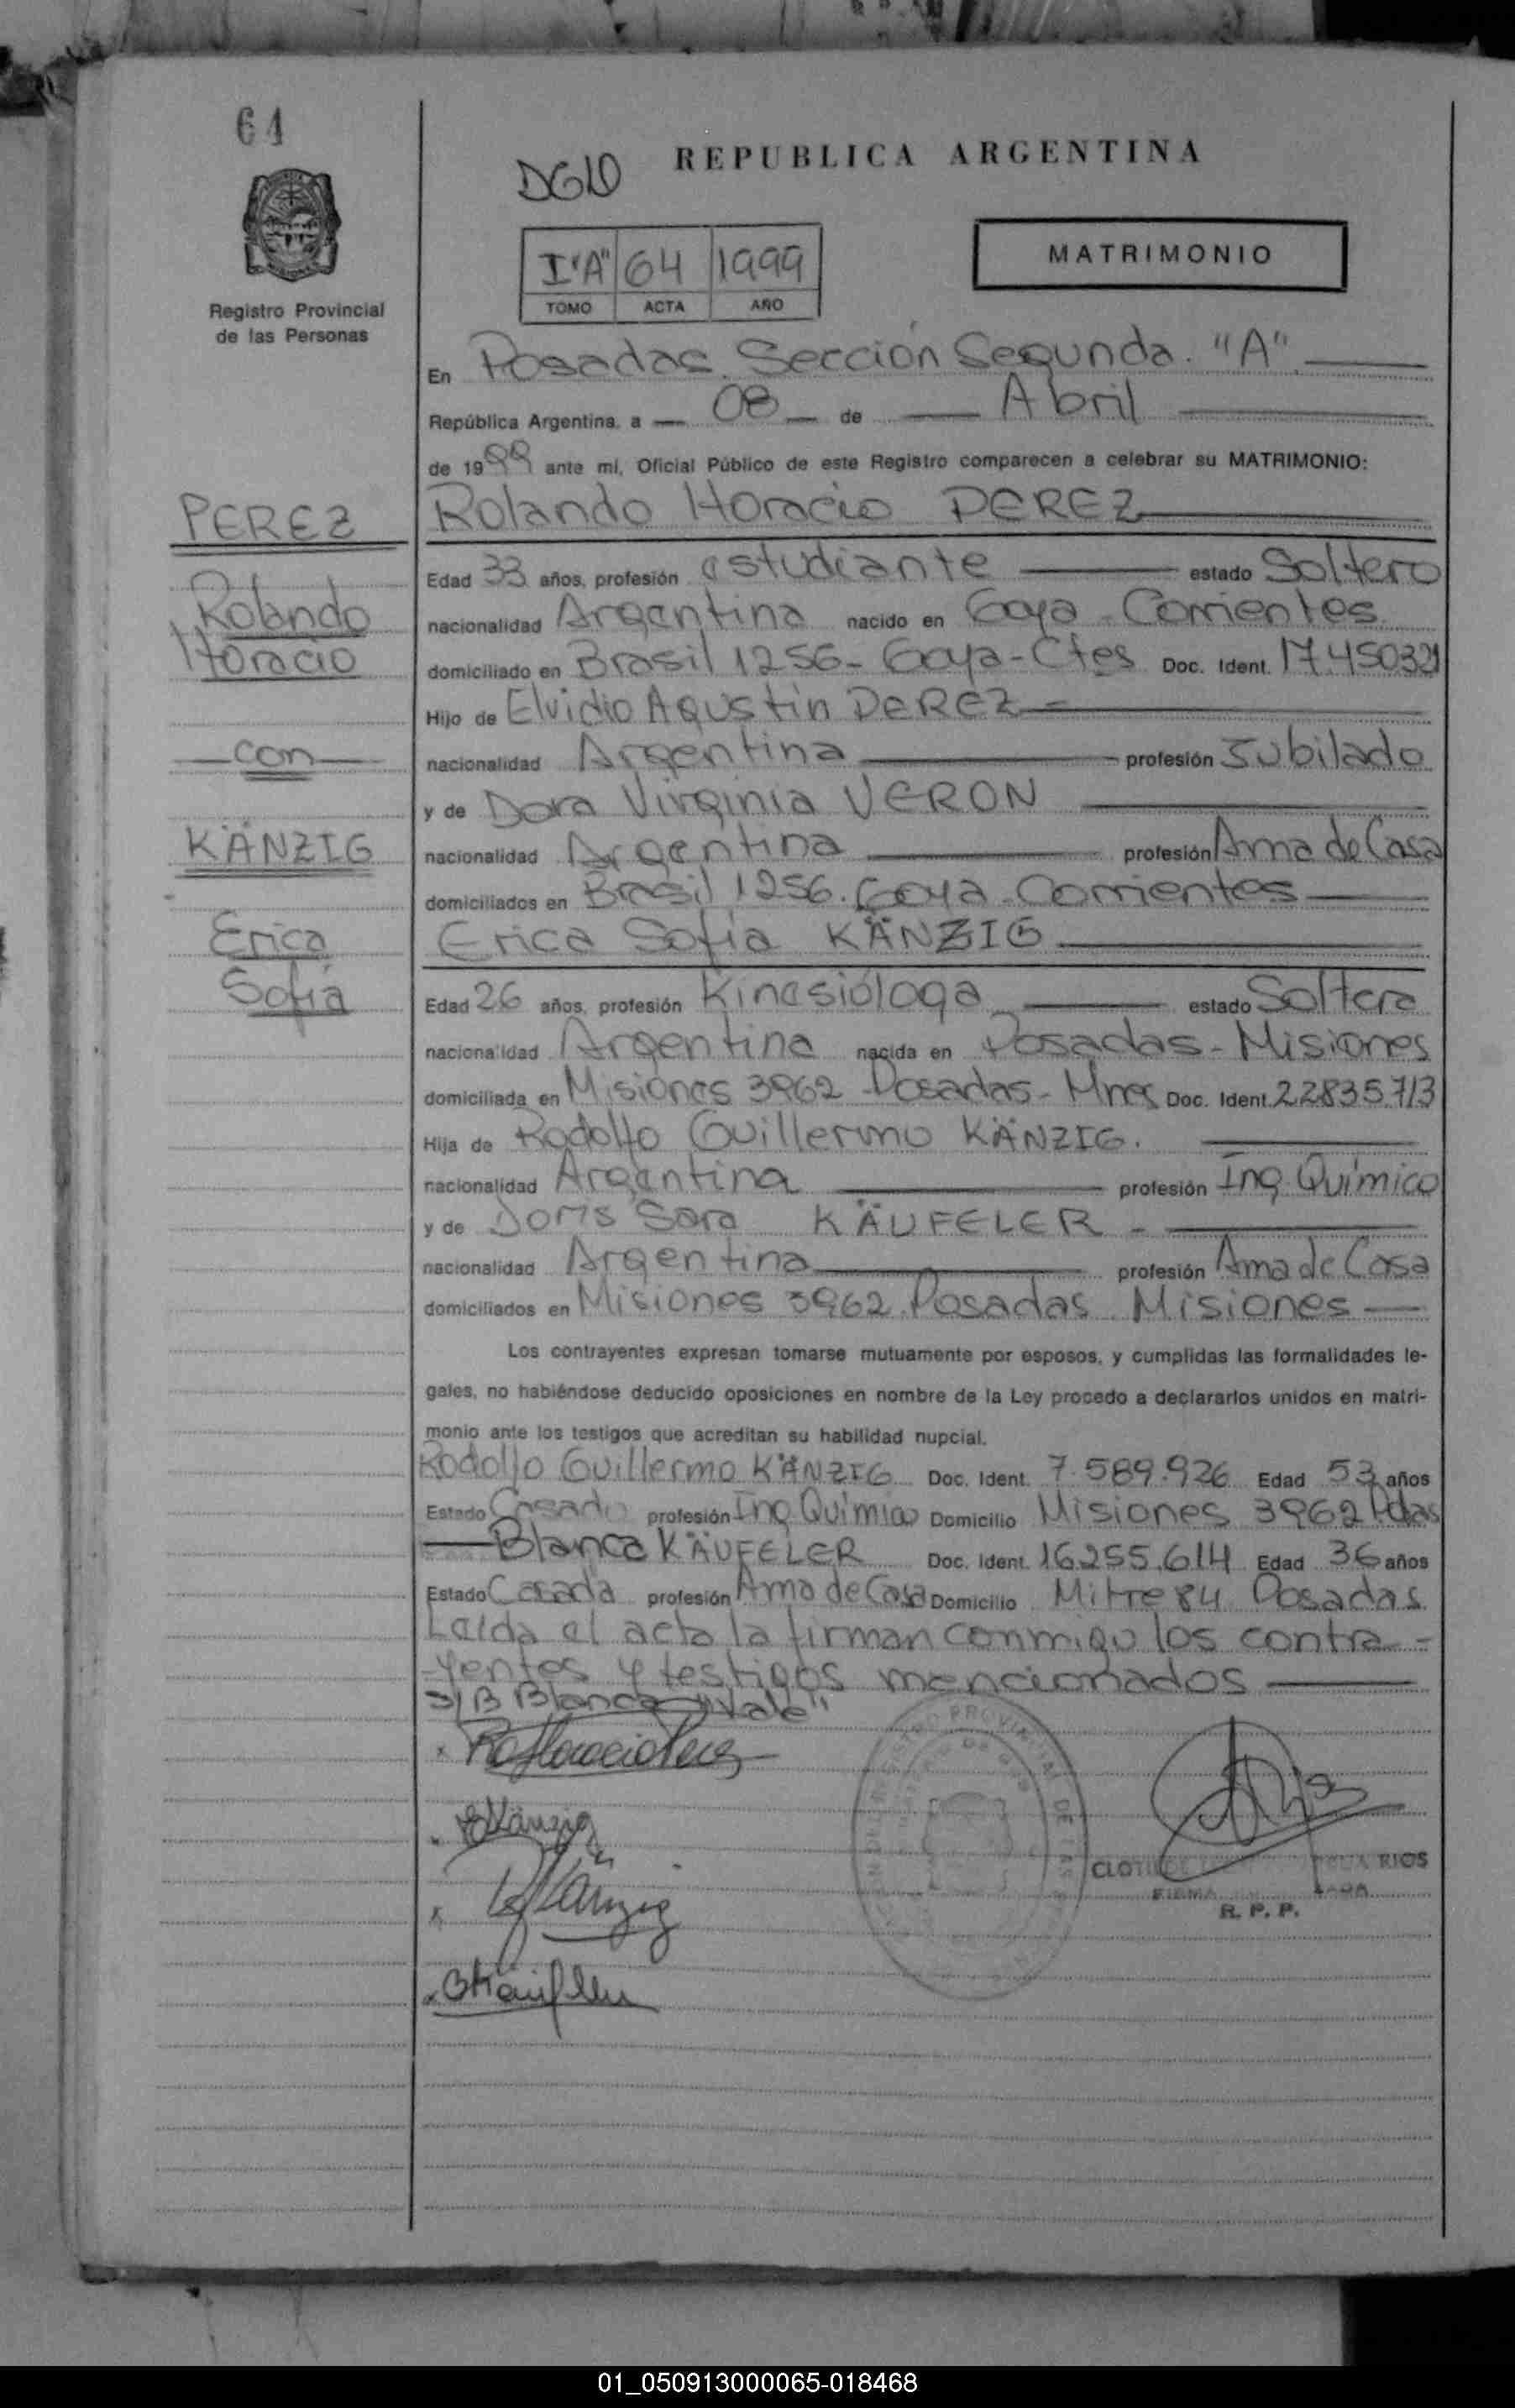 61
REPUBLICA ARGENTINA
I"A" 64 1999
TOMO ACTA AÑO
MATRIMONIO
Registro Provincial
de las Personas
En Posadas. Sección Segunda. "A".
República Argentina, a 08 de Abril
de 1999 ante mí, Oficial Público de este Registro comparecen a celebrar su MATRIMONIO:
PEREZ
Rolando Horacio PEREZ
Edad 33 años, profesión estudiante estado Soltero
Rolando
nacionalidad Argentina nacido en Goya - Corrientes
Horacio
domiciliado en Brasil 1256 - Goya - Ctes Doc. Ident. 17.450321
Hijo de Elvidio Agustin PEREZ
con
nacionalidad Argentina profesión Jubilado
y de Dora Virginia VERON
KÄNZIG
nacionalidad Argentina profesión Ama de Casa
domiciliados en Brasil 1256. Goya - Corrientes
Erica
Erica Sofia KÄNZIG
Sofia
Edad 26 años, profesión Kinesióloga estado Soltera
nacionalidad Argentina nacida en Posadas - Misiones
domiciliada en Misiones 3962 Posadas - Mnes Doc. Ident. 22835713
Hija de Rodolfo Guillermo KÄNZIG.
nacionalidad Argentina profesión Ing. Químico
y de Doris Sara KÄUFELER -
nacionalidad Argentina profesión Ama de Casa
domiciliados en Misiones 3962. Posadas Misiones
Los contrayentes expresan tomarse mutuamente por esposos, y cumplidas las formalidades le-
gales, no habiéndose deducido oposiciones en nombre de la Ley procedo a declararlos unidos en matri-
monio ante los testigos que acreditan su habilidad nupcial.
Rodolfo Guillermo KÄNZIG Doc. Ident. 7.589.926 Edad 53 años
Estado Casado profesión Ing. Químico Domicilio Misiones 3962 Pdas
Blanca KÄUFELER Doc. Ident. 16.255.614 Edad 36 años
Estado Casada profesión Ama de Casa Domicilio Mitre 84 Posadas
Leída el acta la firman conmigo los contra-
yentes y testigos mencionados
S/B Blanca "Vale"
EKänzig
RGKänzig
BKäufeler
RIOS
FIRMA
R. P. P.
01_050913000065-018468